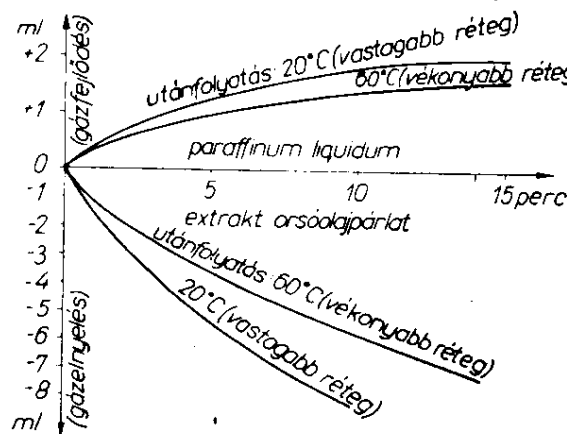 ml
+2
+1
0
-1
-2
-3
-4
-5
-6
-7
-8
ml
(gázfejlődés)
(gázelnyelés)
utánfolyatás: 20°C (vastagabb réteg)
60°C (vékonyabb réteg
paraffinum liquidum
5
10
15 perc
extrakt orsóolajpárlat
utánfolyatás: 60°C (vékonyabb réteg)
20°C (vastagabb réteg)